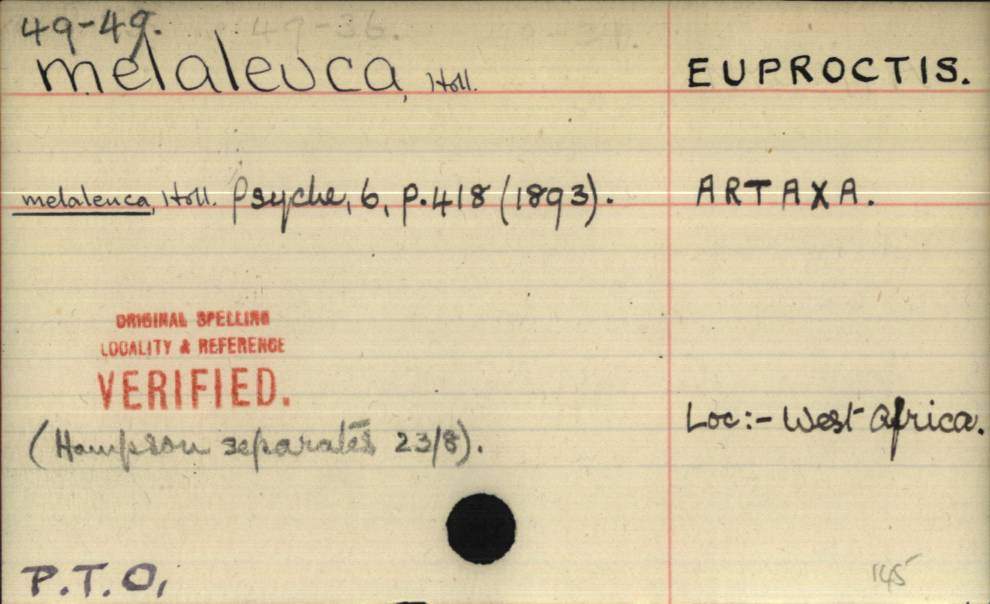 49-49. 49-36.
melaleuca, Holl. EUPROCTIS.
melaleuca, Holl. Psyche, 6, p.418 (1893). ARTAXA.
ORIGINAL SPELLING
LOCALITY & REFERENCE
VERIFIED.
Loc:- West Africa.
(Hampson separates 23/8).
P.T.O,
145